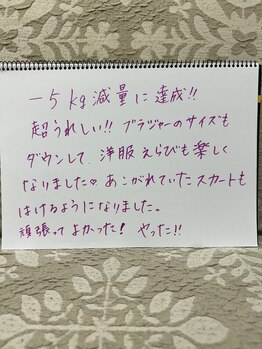 －5kg減量に達成!!
超うれしい!! ブラジャーのサイズも
ダウンして、洋服えらびも楽しく
なりました♡ あこがれていたスカートも
はけるようになりました。
頑張ってよかった! やった!!